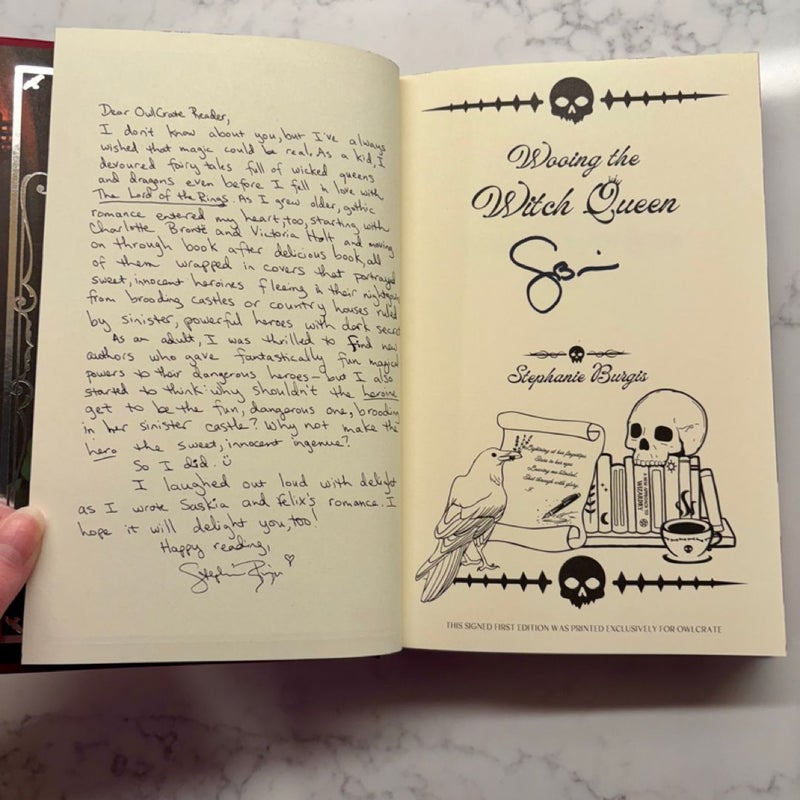 Dear OwlCrate Reader,
I don't know about you, but I've always
wished that magic could be real. As a kid, I
devoured fairy tales full of wicked queens
and dragons even before I fell in love with
The Lord of the Rings. As I grew older, gothic
romance entered my heart, too, starting with
Charlotte Brontë and Victoria Holt and moving
on through book after delicious book, all
of them wrapped in covers that portrayed
sweet, innocent heroines fleeing in their
from brooding castles or country houses ruled
by sinister, powerful heroes with dark secret
As an adult, I was thrilled to find new
authors who gave fantastically fun magical
powers to their dangerous heroes – but I also
started to think: why shouldn't the heroine
get to be the fun, dangerous one, brooding
in her sinister castle? Why not make the
hero the sweet, innocent ingenue?
So I did.
I laughed out loud with delight
as I wrote Saskia and Felix's romance. I
hope it will delight you, too!
Happy reading,
Stephanie Burgis
Wooing the
Witch Queen
Stephanie Burgis
Lightning at her fingertips
WIZARDRY
THIS SIGNED FIRST EDITION WAS PRINTED EXCLUSIVELY FOR OWLCRATE